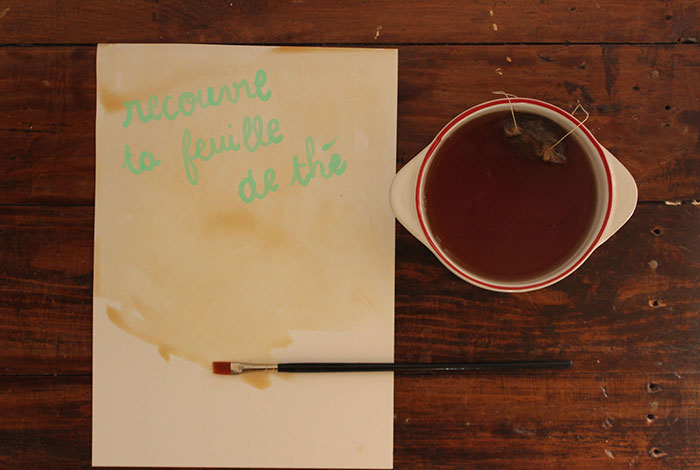 recouvre
ta feuille
de thé